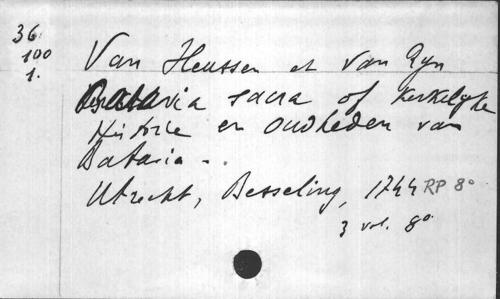 36
100
1.
Van Heussen et Van Ryn
Batavia sacra of kerkelyke
Historie en oudheden van
Batavia ...
Utrecht, Besseling, 1744 RP 8°
3 vol. 8°